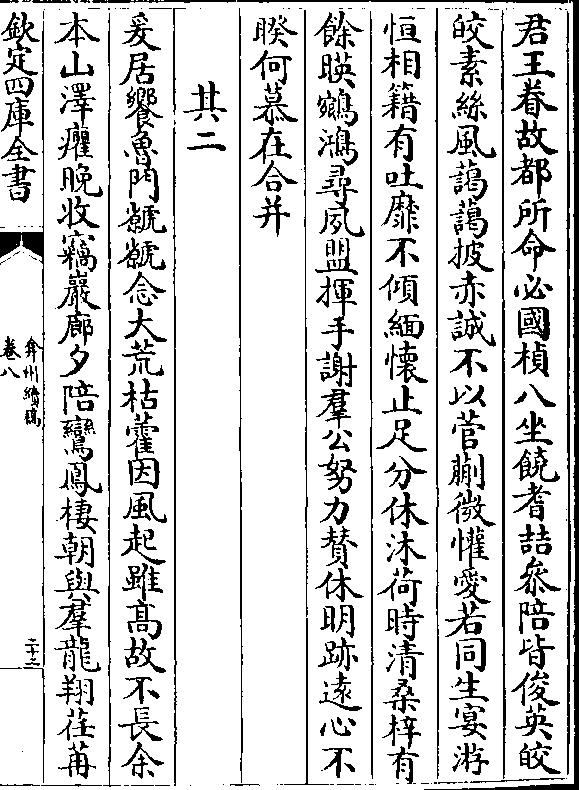 君王眷故都所命必國楨八坐饒耆喆叅陪皆俊英皎
皎素絲風藹藹披赤誠不以菅蒯微懽愛若同生宴游
恒相籍有吐靡不傾緬懷止足分休沐荷時清桑梓有
餘暎鵷鴻尋夙盟揮手謝羣公努力賛休明跡遠心不
睽何慕在合并
其二
爰居饗魯門虩虩念大荒枯藿因風起雖髙故不長余
本山澤癯晚收竊巖廊夕陪鸞鳳棲朝與羣龍翔荏苒
欽定四庫全書
弇州續稿
卷八
二十三